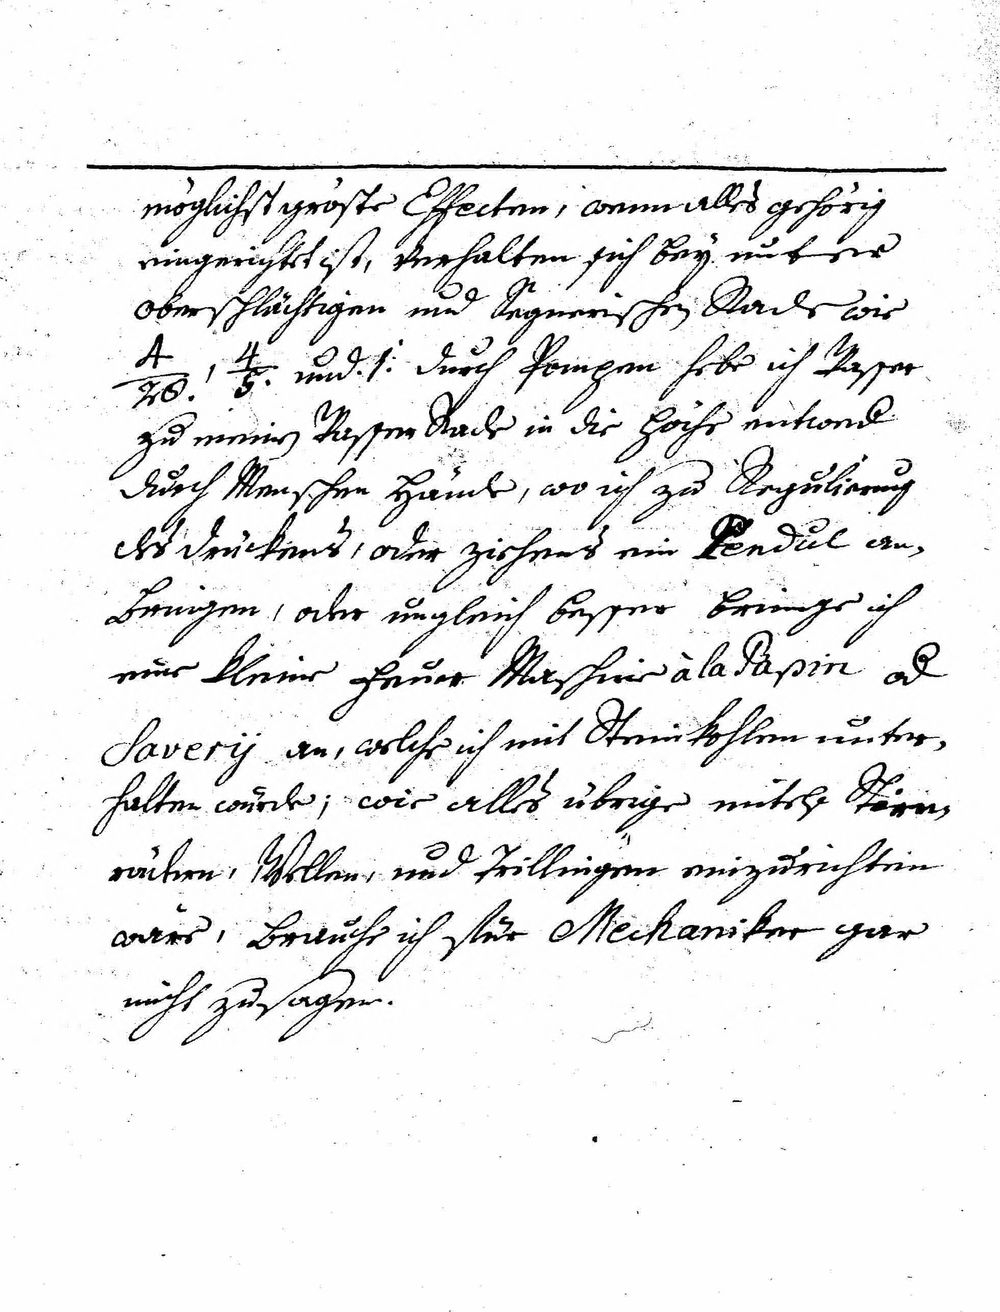 möglichst gröste Effecten, wenn alles gehörig
eingerichtet ist, verhalten sich bey unter
oberschlächtigen und Segnerischen Rade wie
4/28., 4/5. und 1: durch Pompen hebe ich Wasser
zu meinen Wasser Rade in die Höhe entwed
durch Menschen Hände, wo ich zu Regulierung
des drückens, oder ziehens ein Pendul an-
bringen, oder ungleich besser bringe ich
eine kleine Feuer Maschine à la Papin od
Saverij an, welche ich mit Steinkohlen unter-
halten würde; wie alles übrige mitels Stirn-
rädern, Wellen, und Trillingen einzurichten
wäre, brauche ich für Mechaniker gar
nicht zusagen.